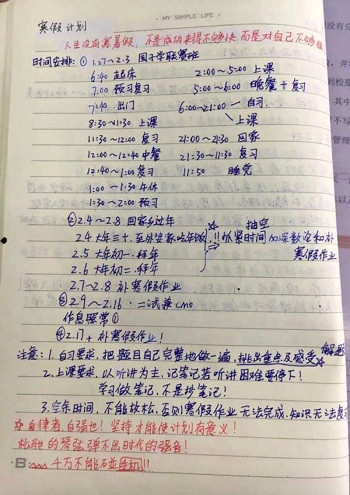 MY SIMPLE LIFE
寒假 计划
人生没有寒暑假，不是成功来得不够快 而是对自己不够狠
时间安排：① 1.27~2.3 国子学联赛班
6:40 起床 2:00~5:00 上课
7:00 预习复习 5:00~6:00 晚餐+复习
7:40 出门 6:00~21:00 自习
上课
8:30~11:30 上课
11:30~12:00 复习 21:00~21:30 回家
12:00~12:40 中餐 21:30~11:30 复习
12:40~1:00 复习 11:50 睡觉
1:00~1:30 午休
1:30~2:00 预习
②2.4~2.8 回家乡过年
2.4 大年三十，至外婆家吃年饭
2.5 大年初一，拜年
2.6 大年初二，拜年
抽空
!!抓紧时间 加深数论和补寒假作业
2.7~2.8 补寒假作业
③2.9~2.16 二试兼cmo
作息照常①
④2.17+ 补寒假作业！
注意：1.自习要求，把题目自己完整地做一遍，挑出重点及感受
2.上课要求，以听讲为主，记笔记若听讲困难要停下！
学习做笔记，不是抄笔记！
3.空余时间，不能放松，否则寒假作业 无法完成，知识无法复习
自律者，自强也！坚持才能使计划有意义！
松弛的琴弦，弹不出时代的强音！
B 千万不能碰手机!!!